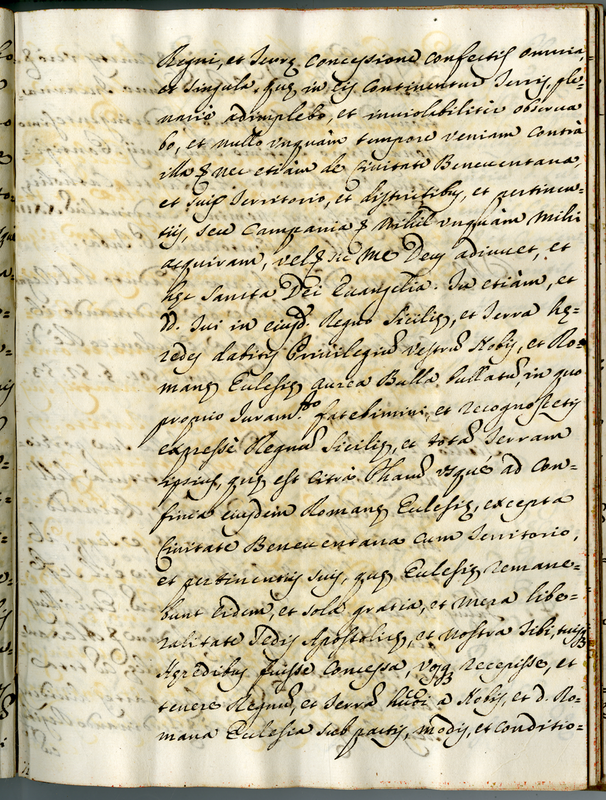 Regni, et Terrę concessione confectis omnia,
et singula, quę in eis continentur Terris ple-
nariè adimplebo, et inviolabiliter observa
bo, et nullo unquàm tempore veniam contrà
illa & nec etiàm de Civitate Beneventana,
et suis Territorio, et districtibus, et pertinen-
tijs, seu Campania & Nihil unquàm mihi
acquiram, vel & sic me Deus adiuvet, et
hęc Sancta Dei Evangelia. Tu etiàm, et
D. Tui in eiusd. Regno Sicilię, et Terra hę-
redes dabitis Privilegium vestrum Nobis, et Ro-
manę Eclesię aurea Bulla bullatum in quo
proprio Juram.to fatebimini, et recognoscetis
expressè Regnum Sicilię, et totam Terram
ipsius, quę est citrà Pharum usquè ad con-
finia eiusdem Romanę Eclesię, excepta
Civitate Beneventana cum Territorio,
et pertinentijs suis, quę Eclesię remane-
bunt eidem, et sola gratia, et mera libe-
ralitate Sedis Apostolicę, et nostra Tibi, tuisq
Hęredibus fuisse concessa, vosq recepisse, et
tenere Regnum, et Terram hui'i a Nobis, et d. Ro-
mana Eclesia sub pactis, modis, et conditio-